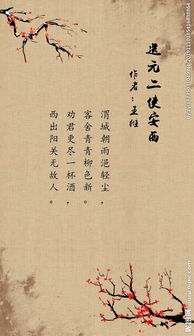 送元二使安西
作者：王维
渭城朝雨浥轻尘，
客舍青青柳色新。
劝君更尽一杯酒，
西出阳关无故人。